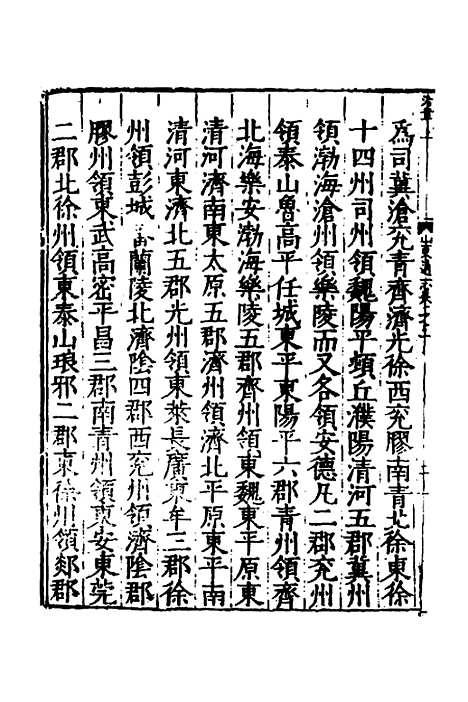 爲司冀滄兗青齊濟光徐西兗膠南青北徐東徐
十四州司州領魏陽平頓丘濮陽清河五郡冀州
領渤海滄州領樂陵而又各領安德凡二郡兗州
領泰山魯高平任城東平東陽平六郡青州領齊
北海樂安渤海樂陵五郡齊州領東魏東平原東
清河濟南東太原五郡濟州領濟北平原東平南
清河東濟北五郡光州領東萊長廣東牟三郡徐
州領彭城 蘭陵北濟陰四郡西兗州領濟陰郡
膠州領東武高密平昌三郡南青州領東安東莞
二郡北徐州領東泰山琅邪二郡東徐州領郯郡